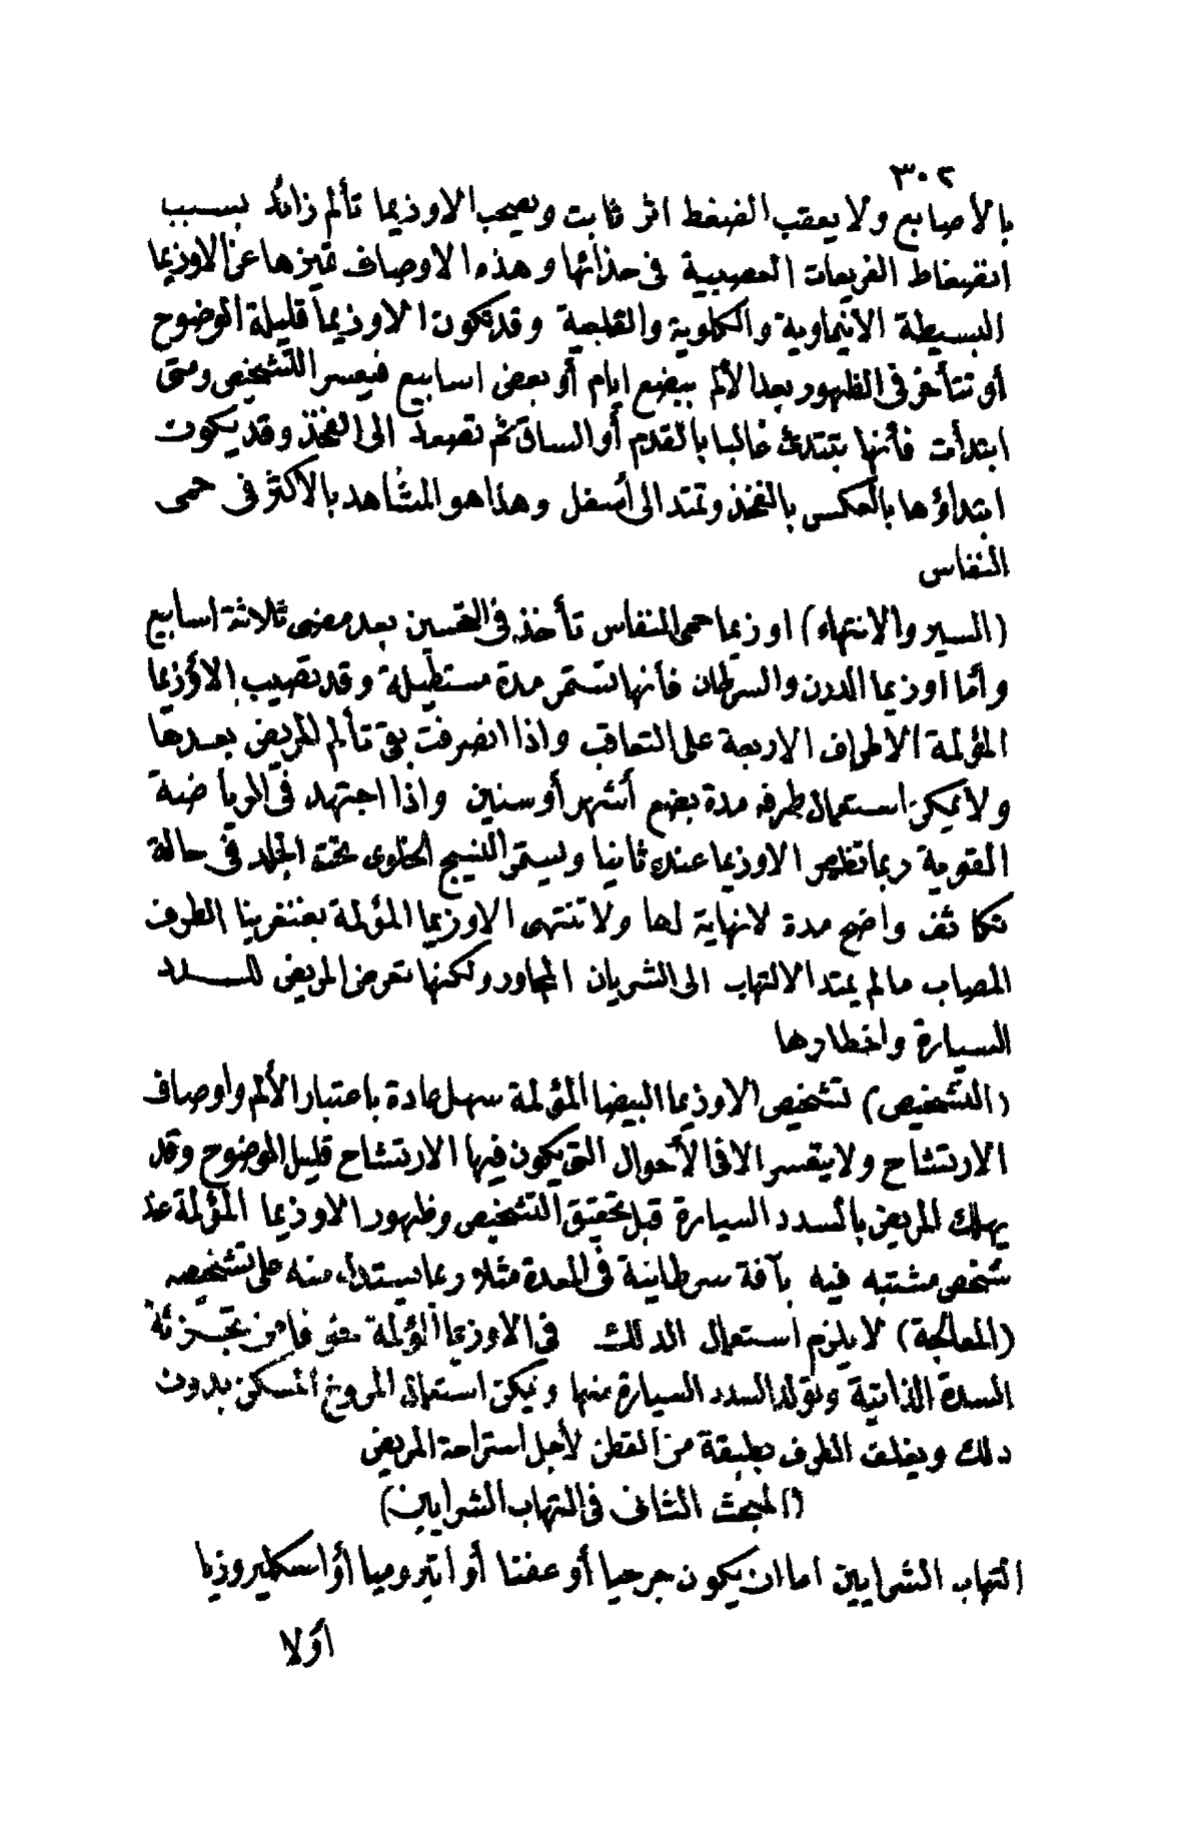 ٣٠٢
بالأصابع ولا يعقب الضغط اثر ثابت ويصحب الاوذيما تألم زائد بسبب
انضغاط الفريعات العصبية فى حذائها وهذه الاوصاف تميزها عن الاوذيما
البسيطة الانيماوية والكلوية والقلبية وقد تكون الاوذيما قليلة الوضوح
أو تتأخر فى الظهور بعد الألم ببضع ايام أو بعض اسابيع فيعسر التشخيص ومتى
ابتدأت فأنها تبتدئ غالبا بالقدم أو الساق ثم تصعد الى الفخذ وقد يكون
ابتداؤها بالعكس بالفخذ وتمتد الى أسفل وهذا هو المشاهد بالاكثر فى حمى
النفاس
(السير والانتهاء) اوذيما حمى النفاس تأخذ فى التحسين بعد مضى ثلاثة اسابيع
وأما اوذيما الدرن والسرطان فأنها تستمر مدة مستطيلة وقد تصيب الاوذيما
المؤلمة الاطراف الاربعة على التعاقب واذا انصرفت بقى تألم للمريض بعدها
ولا يمكن استعمال طرفه مدة بضع أشهر أو سنين واذا اجتهد فى الرياضة
القوية ربما تظهر الاوذيما عنده ثانيا ويستمر النسيج الخلوى تحت الجلد فى حالة
تكاثف واضح مدة لانهاية لها ولا تنتهى الاوزيما المؤلمة بغنغرينا الطرف
المصاب مالم يمتد الالتهاب الى الشريان المجاور ولكنها تعرض المريض للسدد
السيارة واخطارها
(التشخيص) تشخيص الاوذيما البيضا المؤلمة سهل عادة باعتبار الألم واوصاف
الارتشاح ولا يتعسر الا فى الأحوال التى يكون فيها الارتشاح قليل الوضوح وقد
يهلك المريض بالسدد السيارة قبل تحقيق التشخيص وظهور الاوذيما المؤلمة عند
شخص مشتبه فيه بآفة سرطانية فى المعدة مثلا ربما يستدل منه على تشخيصه
(المعالجة) لا يلزم استعمال الدلك فى الاوذيما المؤلمة خوفا من تجزئة
السدة الذاتية وتولد السدد السيارة منها ويمكن استعمال المروخ المسكن بدون
دلك ويغلف الطرف بطبقة من القطن لأجل استراحة المريض
(المبحث الثانى فى التهاب الشرايين)
التهاب الشرايين اما ان يكون جرحيا أو عفنا أو اتيروميا أو اسكليروزيا
اولا